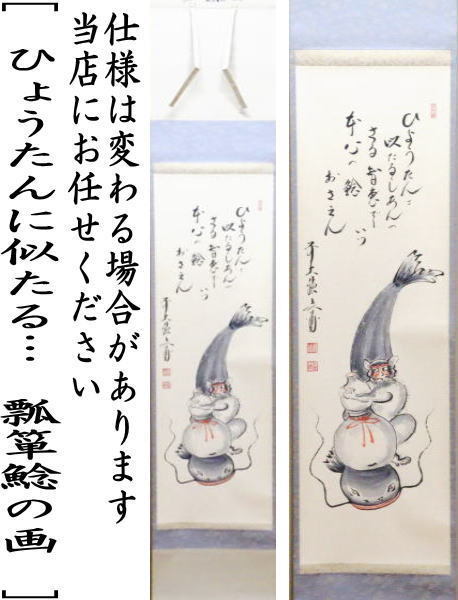 仕様は変わる場合があります
当店にお任せください
【ひょうたんに似たる… 瓢箪鯰の画】
ひょうたんに
似たるしあんの
さる智恵でハ
本心の鯰
おさえん
ひょうたんに
似たるしあんの
さる智恵でハ
本心の鯰
おさえん